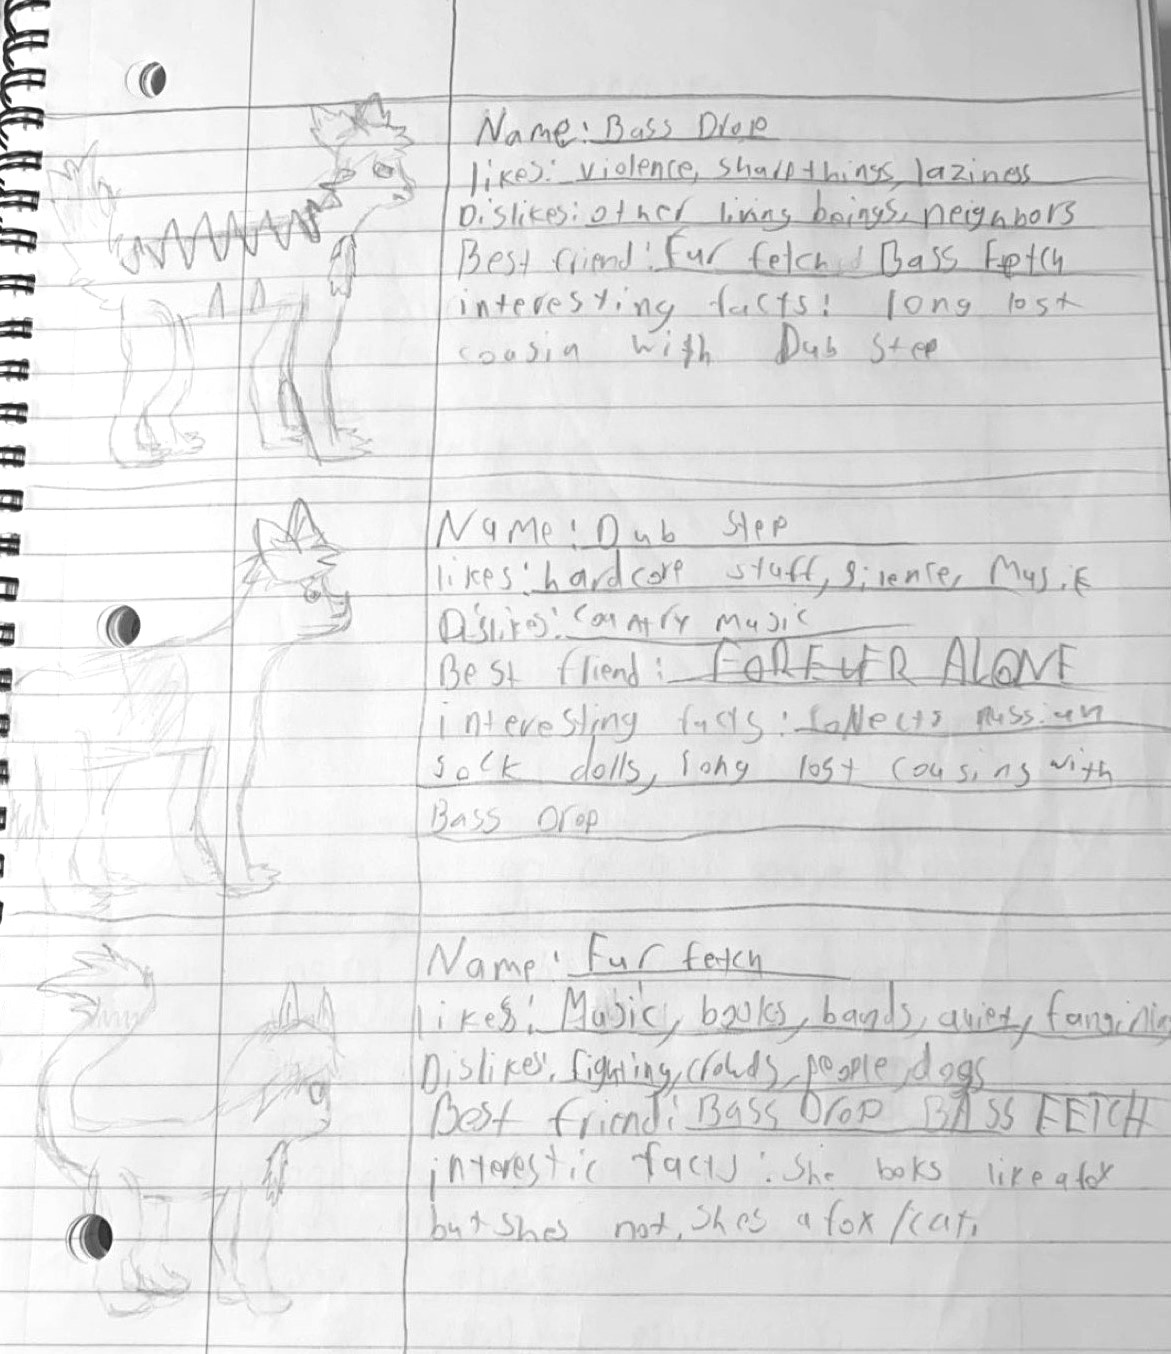 Name: Bass Drop
likes: violence, sharp things, laziness
Dislikes: other living beings, neighbors
Best friend: Fur fetch Bass Fetch
interesting facts: long lost
cousin with Dub Step
Name: Dub Step
likes: hardcore stuff, silence, Music
Dislikes: country music
Best friend: FOREVER ALONE
interesting facts: collects russian
sock dolls, long lost cousins with
Bass Drop
Name: Fur fetch
likes: Music, books, bands, quiet,
Dislikes, fighting, crowds, people, dogs
Best friend: Bass Drop BASS FETCH
interestic facts: she looks like a fox
but shes not, shes a fox/cat.